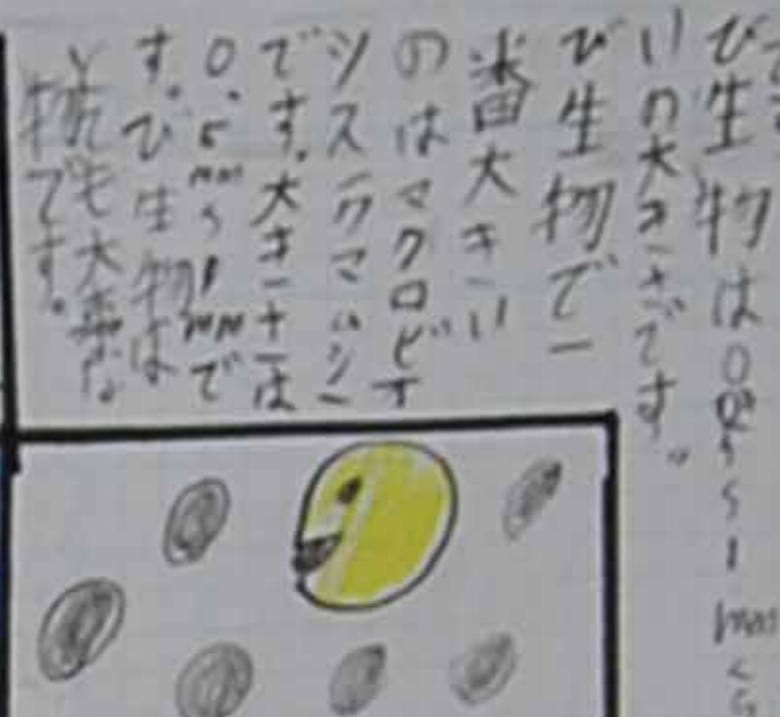 び生物は0.5〜1mmくら
いの大きさです。
び生物で一
番大きい
のはマクロビオ
ツスニクマムシ
です。大きさは
0.5mm〜1mmで
す。び生物は
とても大事な
物です。